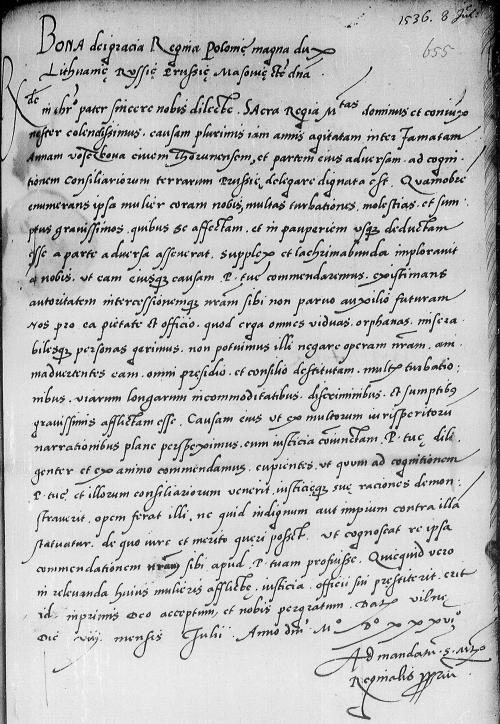 1536. 8 Jul.
655
Bona dei gracia Regina Polonię magna dux
Lithuanię Russię Prussię Masovię etc dna
Rde in chro pater sincere nobis dilecte. Sacra Regia Mtas dominus et coniunx
noster colendissimus, causam plurimis iam annis agitatam inter famatam
Annam civem Thorunensem, et partem eius adversam, ad cogni-
tionem consiliariorum terrarum Prussię delegare dignata est. Quamobrem
enumerans ipsa mulier coram nobis multas turbationes, molestias, et sum-
ptus gravissimos, quibus se affectam, et in pauperiem usq deductam
esse a parte adversa asseverat, supplex et lachrimabunda imploravit
a nobis, ut eam eiusq causam P. tuę commendaremus, existimans
autoritatem intercessionemq nram sibi non parvo auxilio futuram
Nos pro ea pietate et officio, quod erga omnes viduas, orphanas, misera-
bilesq personas gerimus, non potuimus illi negare operam nram, am-
madvertentes eam, omni presidio, et consilio destitutam, multis turbatio-
nibus, viarum longarum incommoditatibus, discriminibus, et sumptibus
gravissimis afflictam esse. Causam eius ut ex multorum iurisperitoru
narrationibus plane perspeximus, cum iusticia coniunctam, P. tuę dili-
genter et ex animo commendamus, cupientes, ut quum ad cognitionem
P. tuę, et illorum consiliariorum venerit, iusticięq suę raciones demon-
straverit, opem ferat illi, ne quid indignum aut impium contra illa
statuatur, de quo iure et merito queri posset. Ut cognoscat re ipsa
commendationem nram sibi apud P. tuam profuisse. Quicquid vero
in relevanda huius mulieris afflictę, iusticia, officii sui prestiterit, erit
id inprimis Deo acceptum, et nobis pergratum. Dat Vilnę
Die viij mensis Julii. Anno dni Mo Do xxxvio
Ad mandatu S. Mtis
Reginalis ppriu